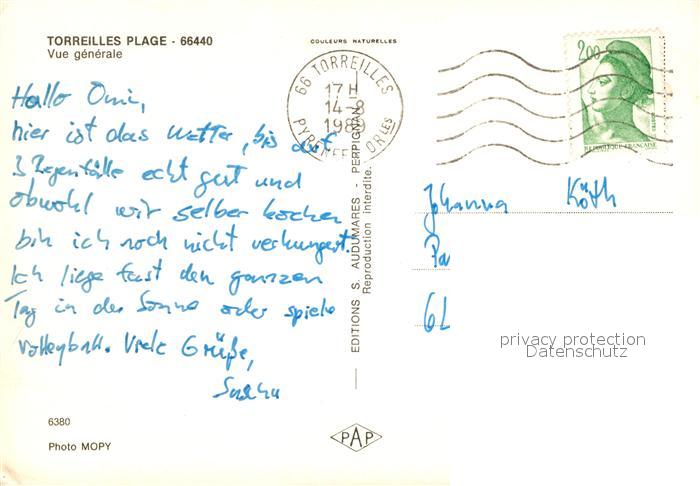 TORREILLES PLAGE - 66440
Vue générale
COULEURS NATURELLES
66 TORREILLES
17 H
14-8
1989
PYRENEES ORLES
2,00
REPUBLIQUE FRANÇAISE
Hallo Omi,
hier ist das Wetter, bis auf
3 Regenfälle echt gut und
obwohl wir selber kochen
bin ich noch nicht verhungert.
Ich liege fast den ganzen
Tag in der Sonne oder spiele
Volleyball. Viele Grüße,
Sascha
EDITIONS S. AUDUMARES - PERPIGNAN
Reproduction interdite.
Johanna Köth
Pa
6L
privacy protection
Datenschutz
6380
Photo MOPY
PAP